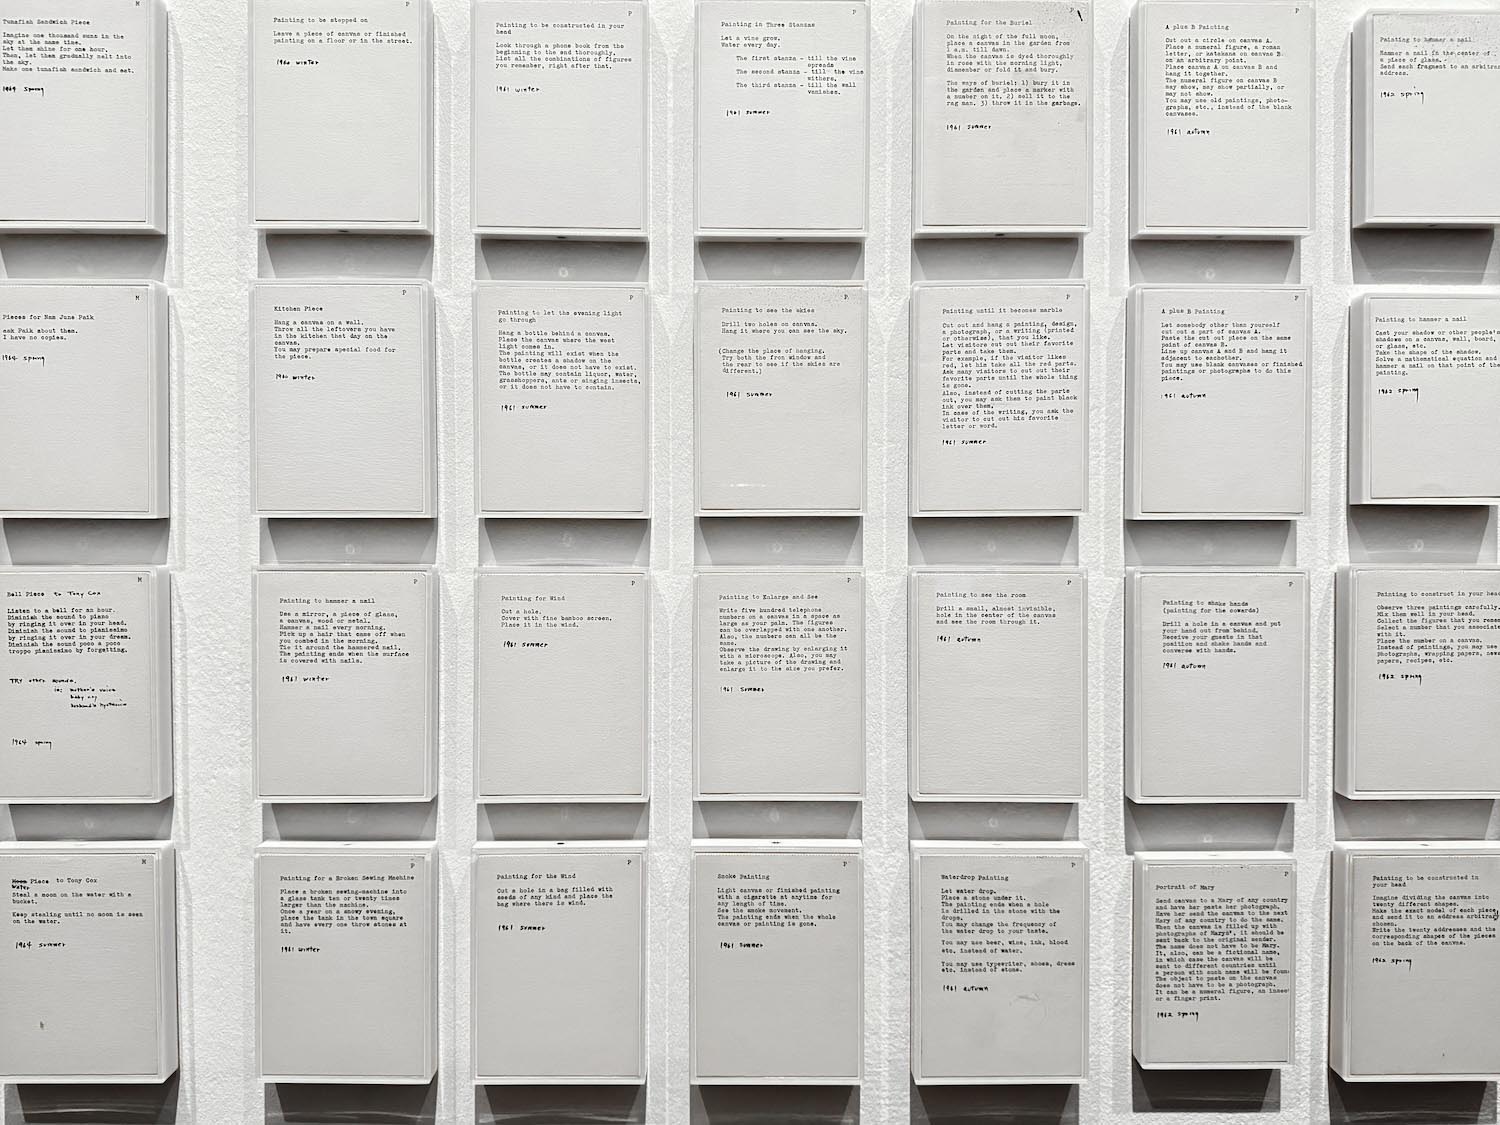 M
Tunafish Sandwich Piece
Imagine one thousand suns in the
sky at the same time.
Let them shine for one hour.
Then, let them gradually melt into
the sky.
Make one tunafish sandwich and eat.
1964 spring
Painting to be stepped on
Leave a piece of canvas or finished
painting on a floor or in the street.
1960 winter
P
Painting to be constructed in your
head
Look through a phone book from the
beginning to the end thoroughly.
List all the combinations of figures
you remember, right after that.
1961 winter
P
Painting in Three Stanzas
Let a vine grow.
Water every day.
The first stanza - till the vine
spreads
The second stanza - till the vine
withers.
The third stanza - till the wall
vanishes.
1961 summer
P
Painting for the Burial
On the night of the full moon,
place a canvas in the garden from
1 a.m. till dawn.
When the canvas is dyed thoroughly
in rose with the morning light,
dismember or fold it and bury.
The ways of burial: 1) bury it in
the garden and place a marker with
a number on it. 2) sell it to the
rag man. 3) throw it in the garbage.
1961 summer
P
A plus B Painting
Cut out a circle on canvas A.
Place a numeral figure, a roman
letter, or katakana on canvas B
on an arbitrary point.
Place canvas A on canvas B and
hang it together.
The numeral figure on canvas B
may show, may show partially, or
may not show.
You may use old paintings, photo-
graphs, etc., instead of the blank
canvases.
1961 autumn
Painting to hammer a nail
Hammer a nail in the center of
a piece of glass.
Send each fragment to an arbitrary
address.
1962 spring
M
Pieces for Nam June Paik
ask Paik about them.
I have no copies.
1964 spring
P
Kitchen Piece
Hang a canvas on a wall.
Throw all the leftovers you have
in the kitchen that day on the
canvas.
You may prepare special food for
the piece.
1960 winter
P
Painting to let the evening light
go through
Hang a bottle behind a canvas.
Place the canvas where the west
light comes in.
The painting will exist when the
bottle creates a shadow on the
canvas, or it does not have to exist.
The bottle may contain liquor, water,
grasshoppers, ants or singing insects,
or it does not have to contain.
1961 summer
P
Painting to see the skies
Drill two holes on canvas.
Hang it where you can see the sky.
(Change the place of hanging.
Try both the front window and
the rear to see if the skies are
different.)
1961 summer
P
Painting until it becomes marble
Cut out and hang a painting, design,
a photograph, or a writing (printed
or otherwise), that you like.
Let visitors cut out their favorite
parts and take them.
For example, if the visitor likes
red, let him take all the red parts.
Ask many visitors to cut out their
favorite parts until the whole thing
is gone.
Also, instead of cutting the parts
out, you may ask them to paint black
ink over them.
In case of the writing, you ask the
visitor to cut out his favorite
letter or word.
1961 summer
P
A plus B Painting
Let somebody other than yourself
cut out a part of canvas A.
Paste the cut out piece on the same
point of canvas B.
Line up canvas A and B and hang it
adjacent to eachother.
You may use blank canvases or finished
paintings or photographs to do this
piece.
1961 autumn
Painting to hammer a nail
Cast your shadow or other people's
shadows on a canvas, wall, board,
or glass, etc.
Take the shape of the shadow.
Solve a mathematical equation and
hammer a nail on that point of the
painting.
1962 spring
M
Bell Piece to Tony Cox
Listen to a bell for an hour.
Diminish the sound to piano
by ringing it over in your head.
Diminish the sound to pianissimo
by ringing it over in your dream.
Diminish the sound poco a poco
troppo pianissimo by forgetting.
TRY other sounds,
ie; mother's voice
baby cry
husband's hysteria
1964 spring
P
Painting to hammer a nail
Use a mirror, a piece of glass,
a canvas, wood or metal.
Hammer a nail every morning.
Pick up a hair that came off when
you combed in the morning.
Tie it around the hammered nail.
The painting ends when the surface
is covered with nails.
1961 winter
P
Painting for Wind
Cut a hole.
Cover with fine bamboo screen.
Place it in the wind.
1961 summer
P
Painting to Enlarge and See
Write five hundred telephone
numbers on a canvas in a space as
large as your palm. The figures
can be overlapped with one another.
Also, the numbers can all be the
same.
Observe the drawing by enlarging it
with a microscope. Also, you may
take a picture of the drawing and
enlarge it to the size you prefer.
1961 summer
P
Painting to see the room
Drill a small, almost invisible,
hole in the center of the canvas
and see the room through it.
1961 autumn
P
Painting to shake hands
(painting for the cowards)
Drill a hole in a canvas and put
your hand out from behind.
Receive your guests in that
position and shake hands and
converse with hands.
1961 autumn
Painting to construct in your head
Observe three paintings carefully.
Mix them well in your head.
Collect the figures that you
Select a number that you associate
with it.
Place the number on a canvas.
Instead of paintings, you may use
photographs, wrapping papers,
papers, recipes, etc.
1962 spring
M
Piece to Tony Cox
Water
Steal a moon on the water with a
bucket.
Keep stealing until no moon is seen
on the water.
1964 summer
P
Painting for a Broken Sewing Machine
Place a broken sewing-machine into
a glass tank ten or twenty times
larger than the machine.
Once a year on a snowy evening,
place the tank in the town square
and have every one throw stones at
it.
1961 winter
P
Painting for the Wind
Cut a hole in a bag filled with
seeds of any kind and place the
bag where there is wind.
1961 summer
P
Smoke Painting
Light canvas or finished painting
with a cigarette at anytime for
any length of time.
See the smoke movement.
The painting ends when the whole
canvas or painting is gone.
1961 summer
P
Waterdrop Painting
Let water drop.
Place a stone under it.
The painting ends when a hole
is drilled in the stone with the
drops.
You may change the frequency of
the water drop to your taste.
You may use beer, wine, ink, blood
etc. instead of water.
You may use typewriter, shoes, dress
etc. instead of stone.
1961 autumn
P
Portrait of Mary
Send canvas to a Mary of any country
and have her paste her photograph.
Have her send the canvas to the next
Mary of any country to do the same.
When the canvas is filled up with
photographs of Marys, it should be
sent back to the original sender.
The name does not have to be Mary.
It, also, can be a fictional name,
in which case the canvas will be
sent to different countries until
a person with such name will be found
The object to paste on the canvas
does not have to be a photograph.
It can be a numeral figure, an insect
or a finger print.
1962 spring
Painting to be constructed in
your head
Imagine dividing the canvas into
twenty different shapes.
Make the exact model of each piece,
and send it to an address arbitrary
chosen.
Write the twenty addresses and the
corresponding shapes of the pieces
on the back of the canvas.
1962 spring